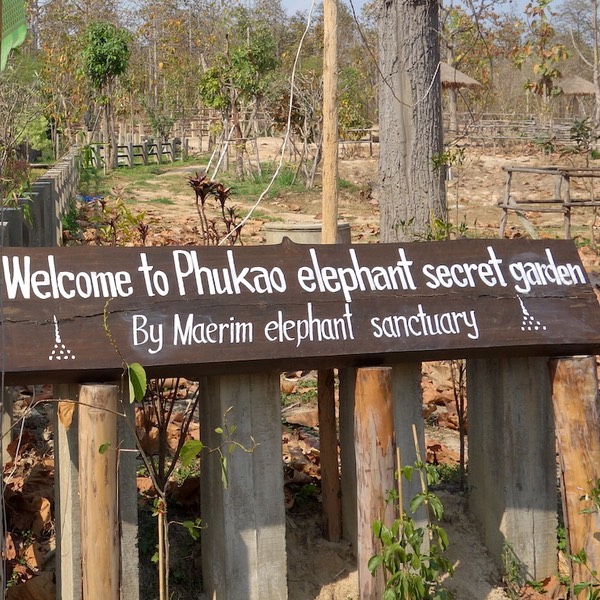 Welcome to Phukao elephant secret garden
By Maerim elephant sanctuary